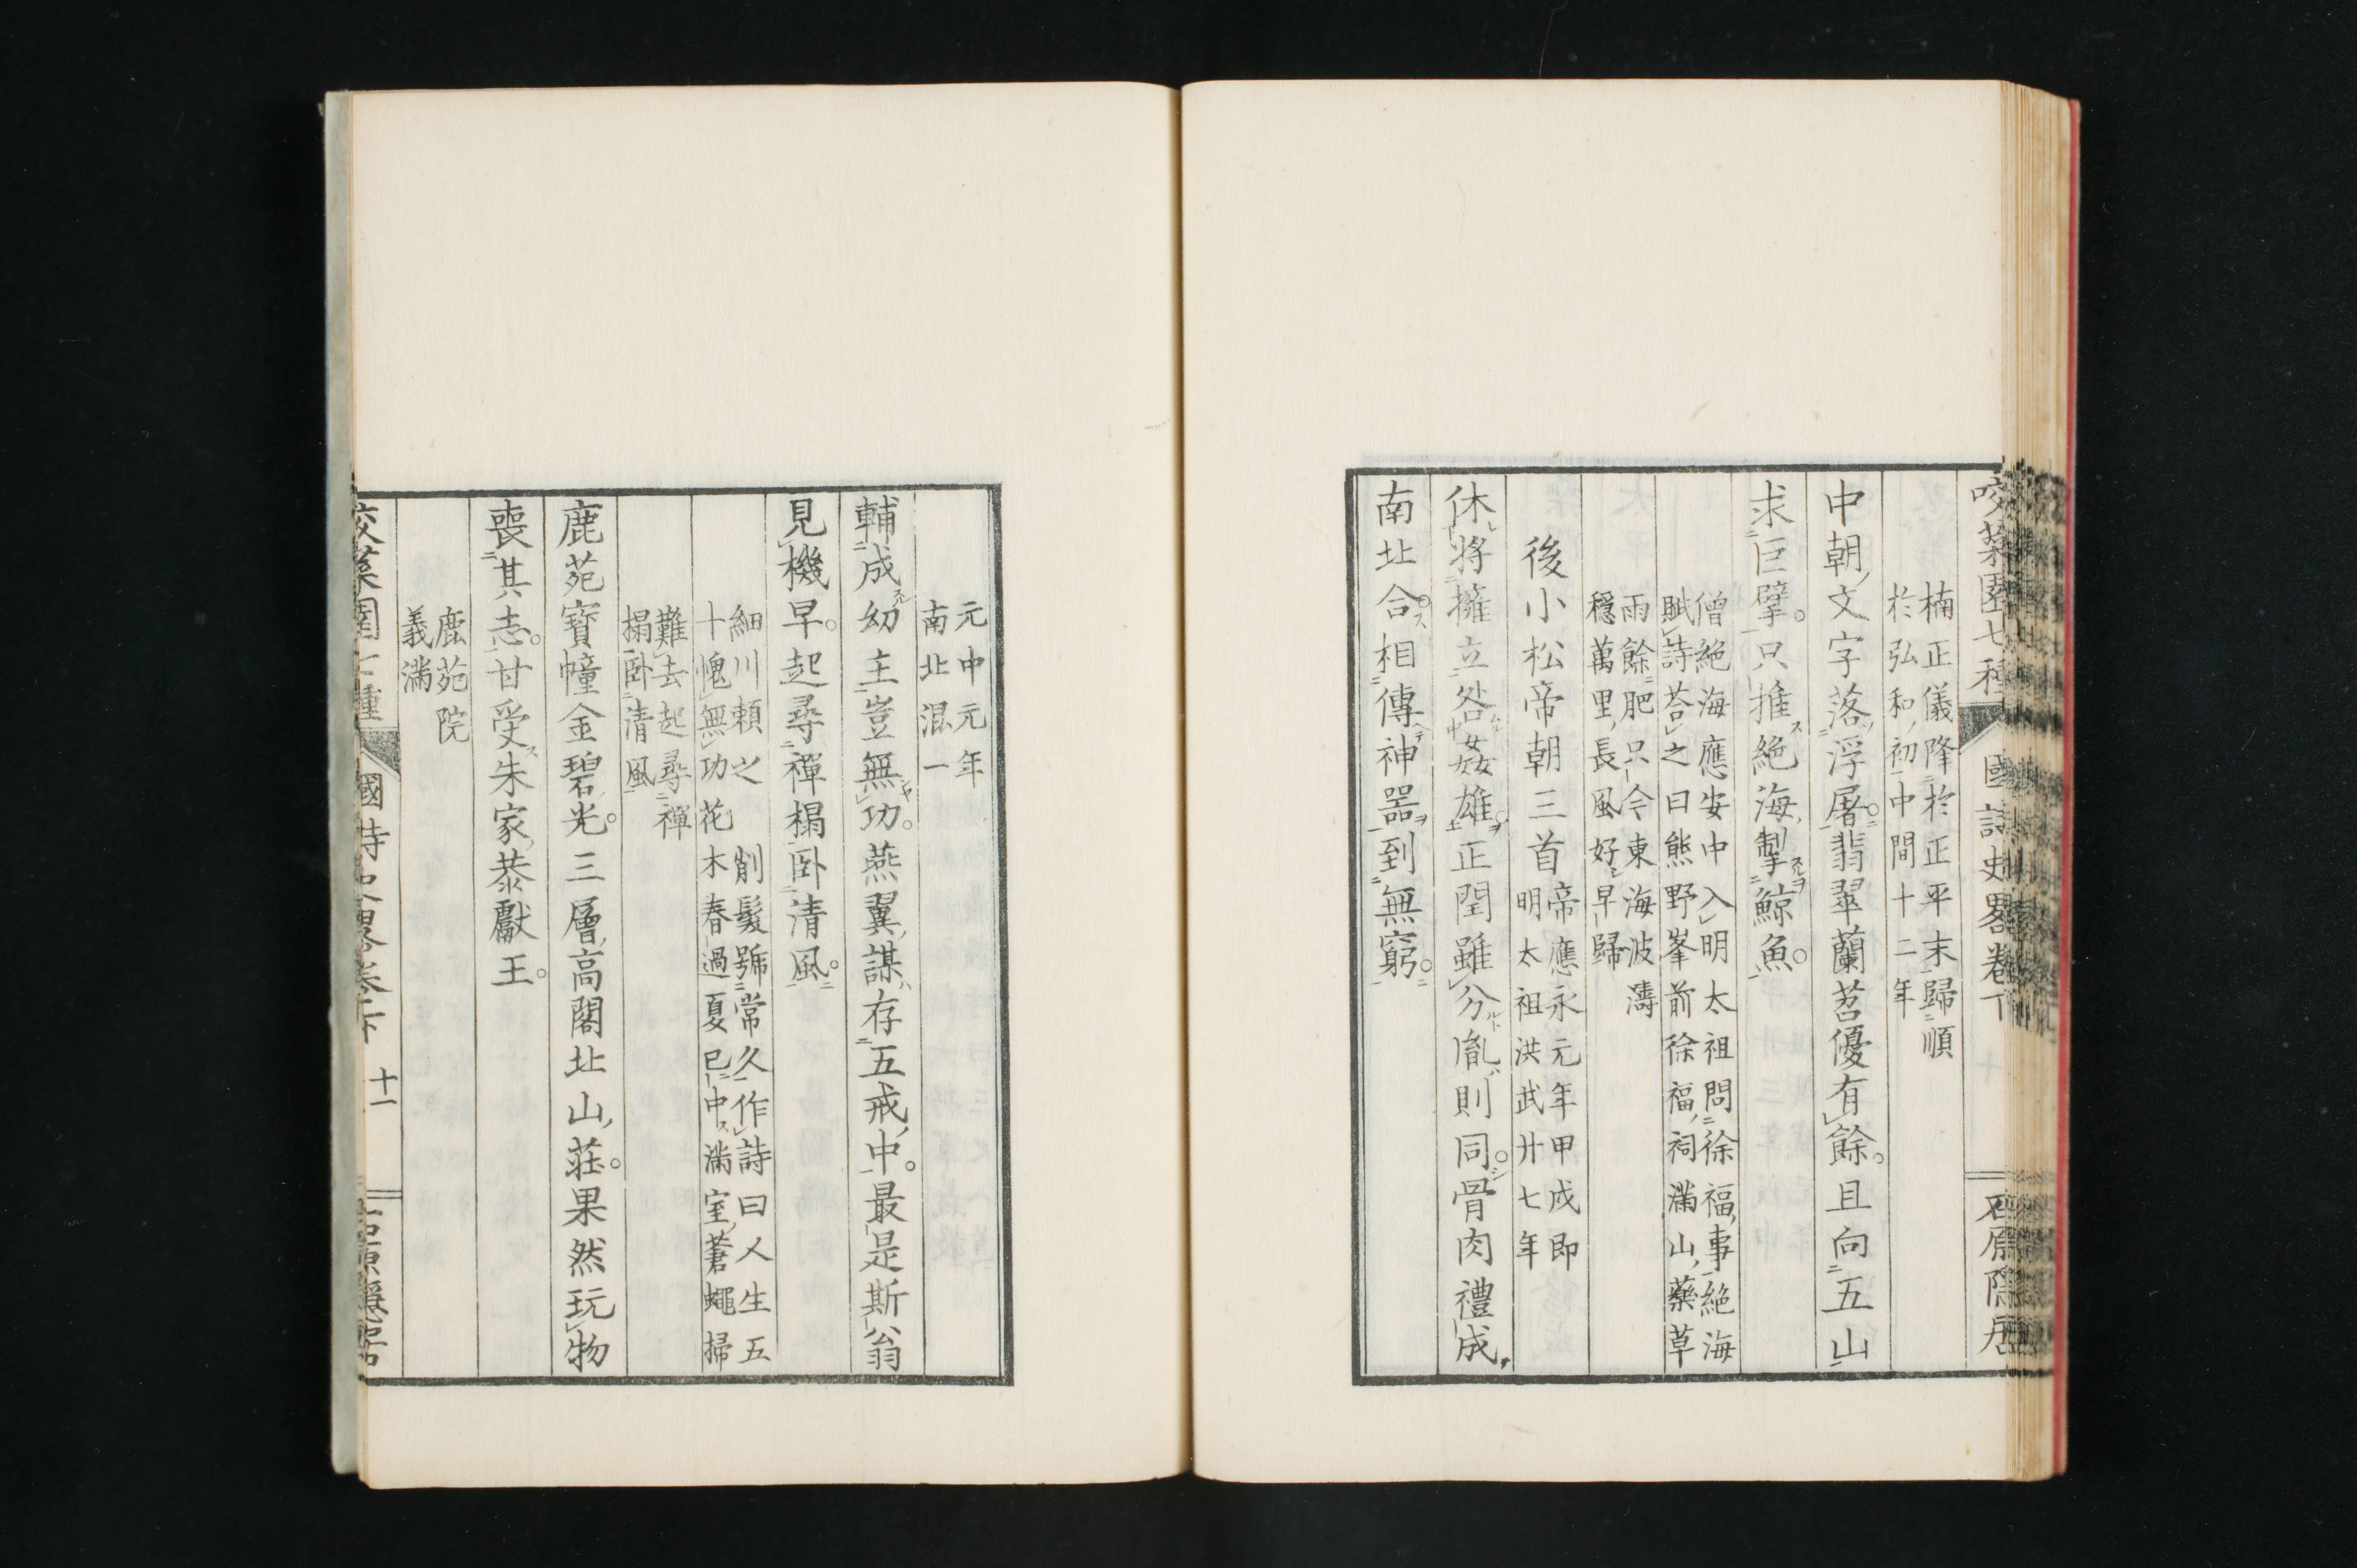 咬菜園七種 國詩史畧卷下 石原隱居
楠正儀降於正平末歸順
於弘和初中間十二年
中朝文字落浮屠翡翠蘭苕優有餘且向五山
求巨擘只推絶海掣鯨魚
僧絶海應安中入明太祖問徐福事絶海
賦詩荅之曰熊野峯前徐福祠滿山藥草
雨餘肥只今東海波濤
穩萬里長風好早歸
後小松帝朝三首
帝應永元年甲戌即
明太祖洪武廿七年
休將擁立咎姦雄正閏雖分胤則同骨肉禮成
南北合相傳神器到無窮
元中元年
南北混一
輔成幼主豈無功燕翼謀存五戒中最是斯翁
見機早起尋禪榻卧清風
細川頼之 削髮號常久作詩曰人生五
十愧無功花木春過夏已中滿室蒼蠅掃
難去起尋禪
榻卧清風
鹿苑寶幢金碧光三層高閣北山莊果然玩物
喪其志甘受朱家恭獻王
鹿苑院
義滿
咬菜園七種 國詩史畧卷下 十一 石原隱居